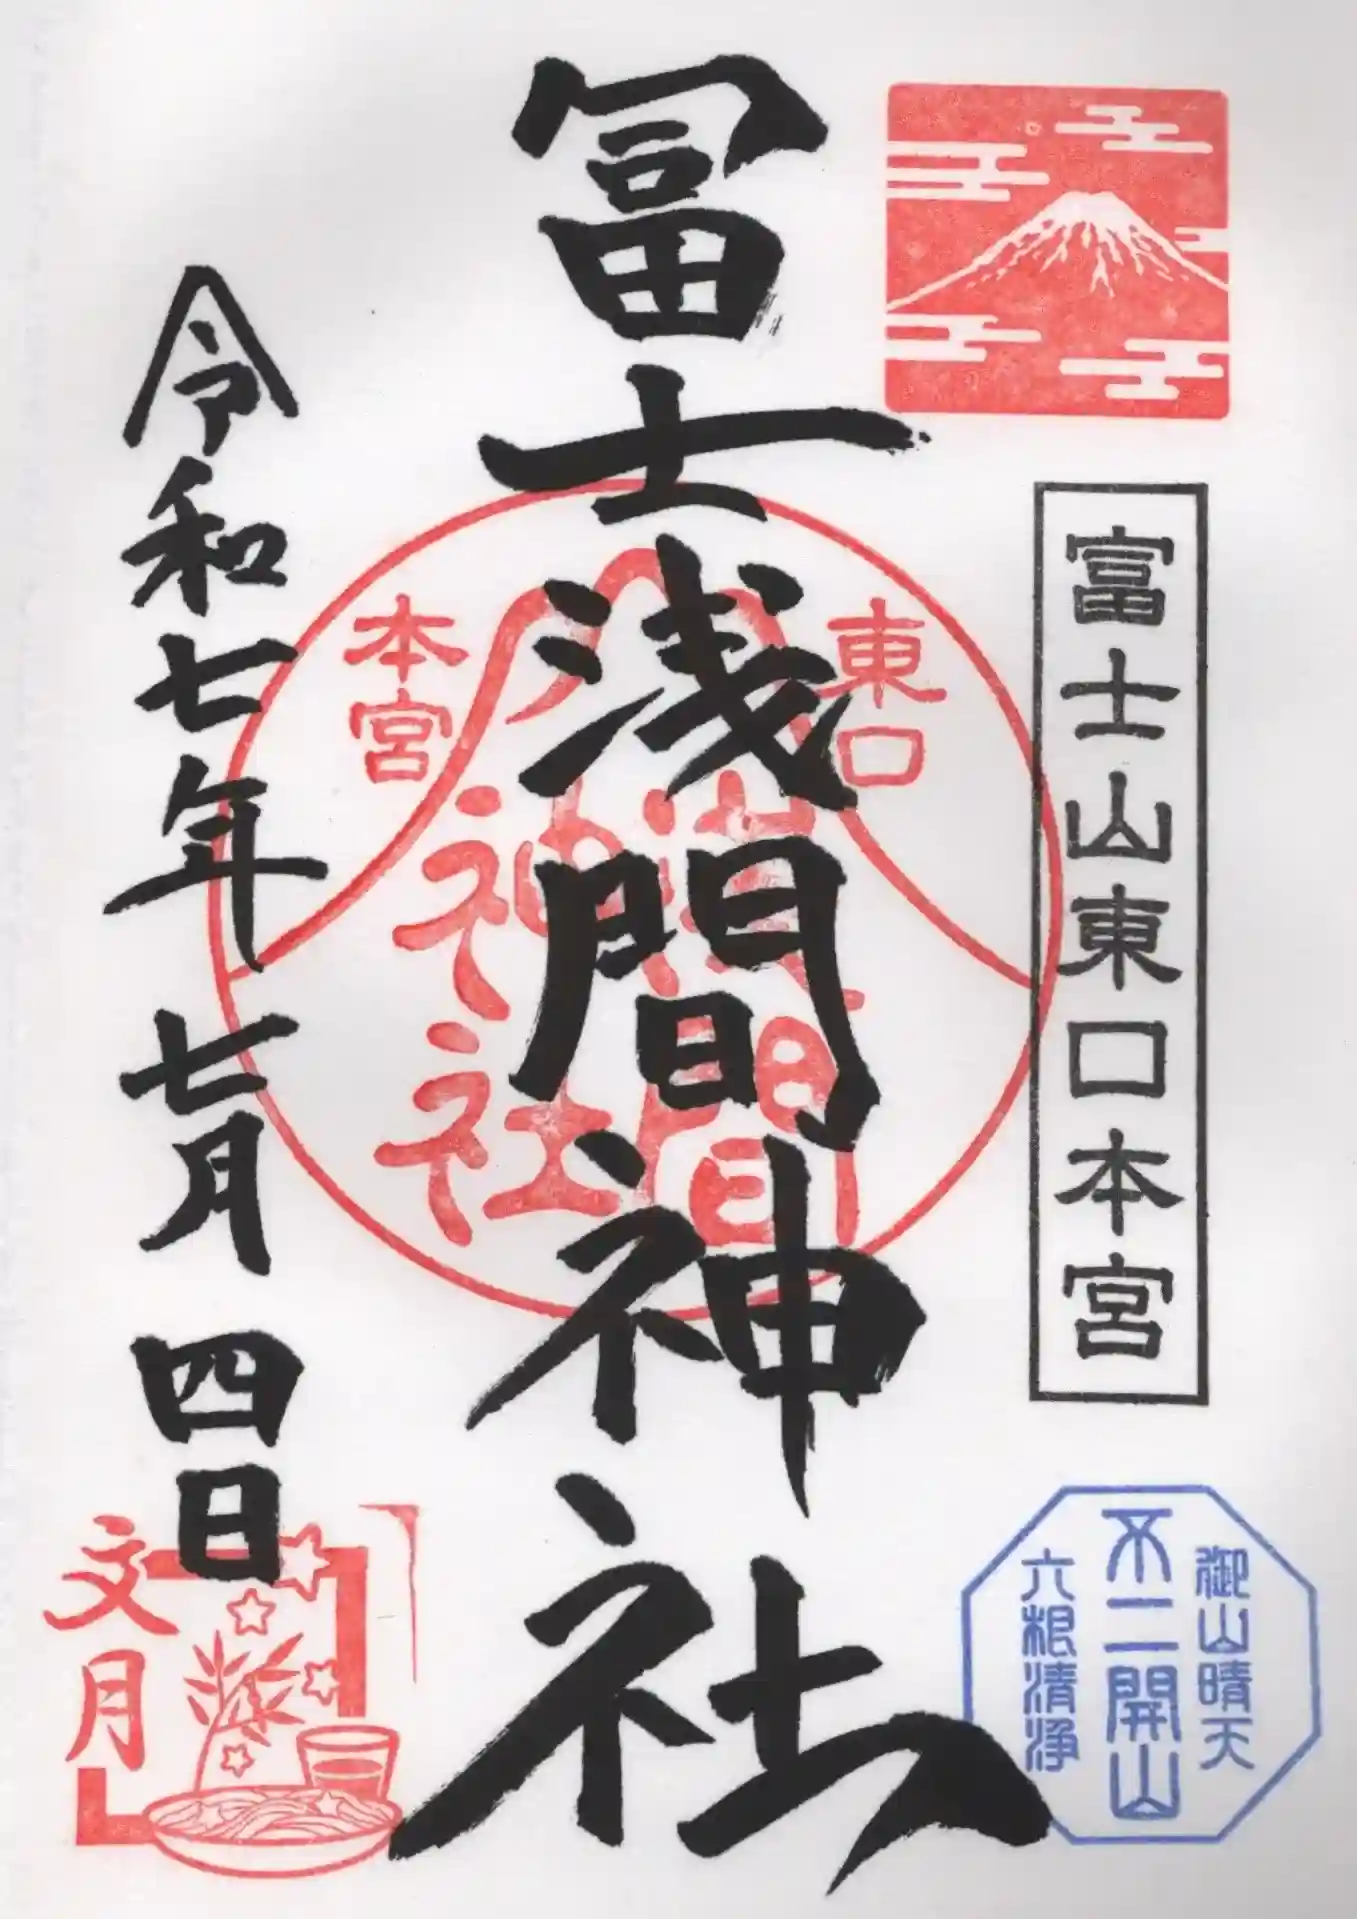 富士山東口本宮
御山晴天
不二開山
六根清浄
冨士浅間神社
東口
本宮
浅間
神社
令和七年七月四日
文月